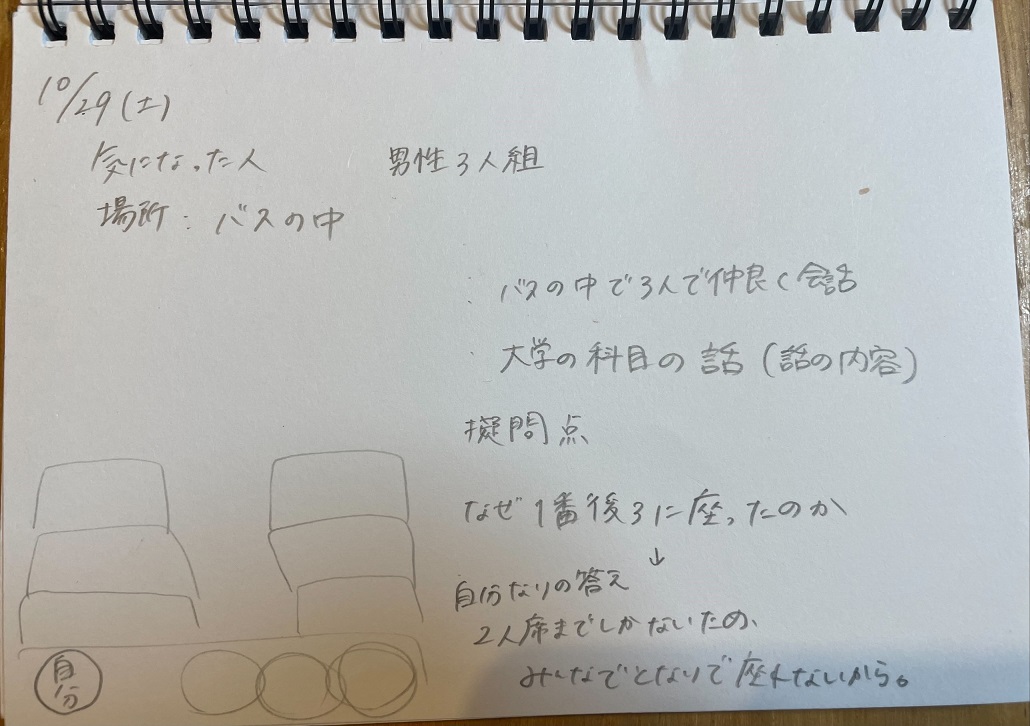 10/29(土)
気になった人 男性3人組
場所: バスの中
・バスの中で3人で仲良く会話
・大学の科目の話(話の内容)
擬問点
なぜ1番後ろに座ったのか
↓
自分なりの答え
2人席までしかないため、
みんなでとなりで座れないから。
自分